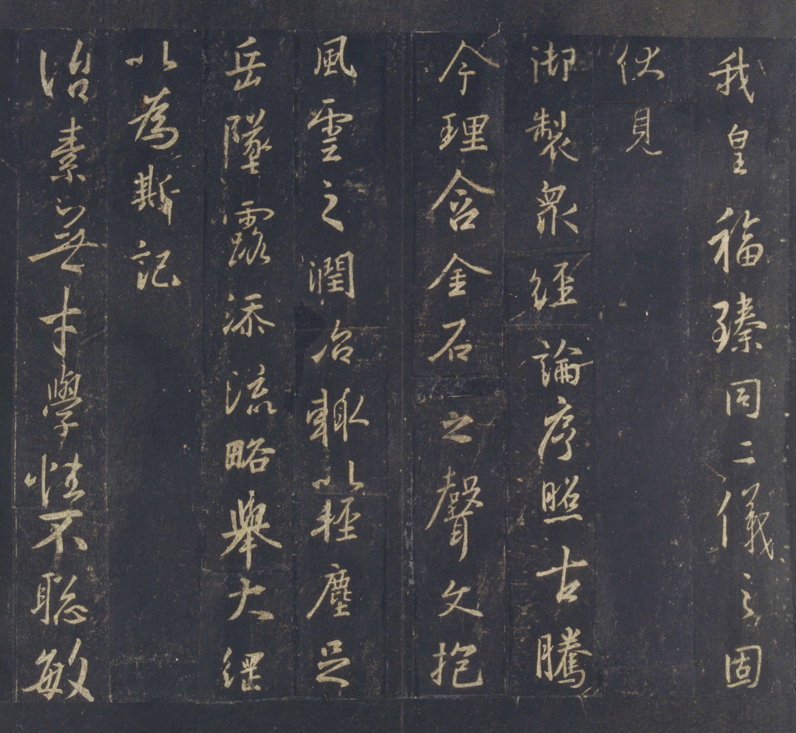 我皇福臻同二儀之固
伏見
御製衆經論序照古騰
今理含金石之聲文抱
風雲之潤治輙以輕塵足
岳墜露添流略舉大綱
以為斯記
治素無才學性不聦敏